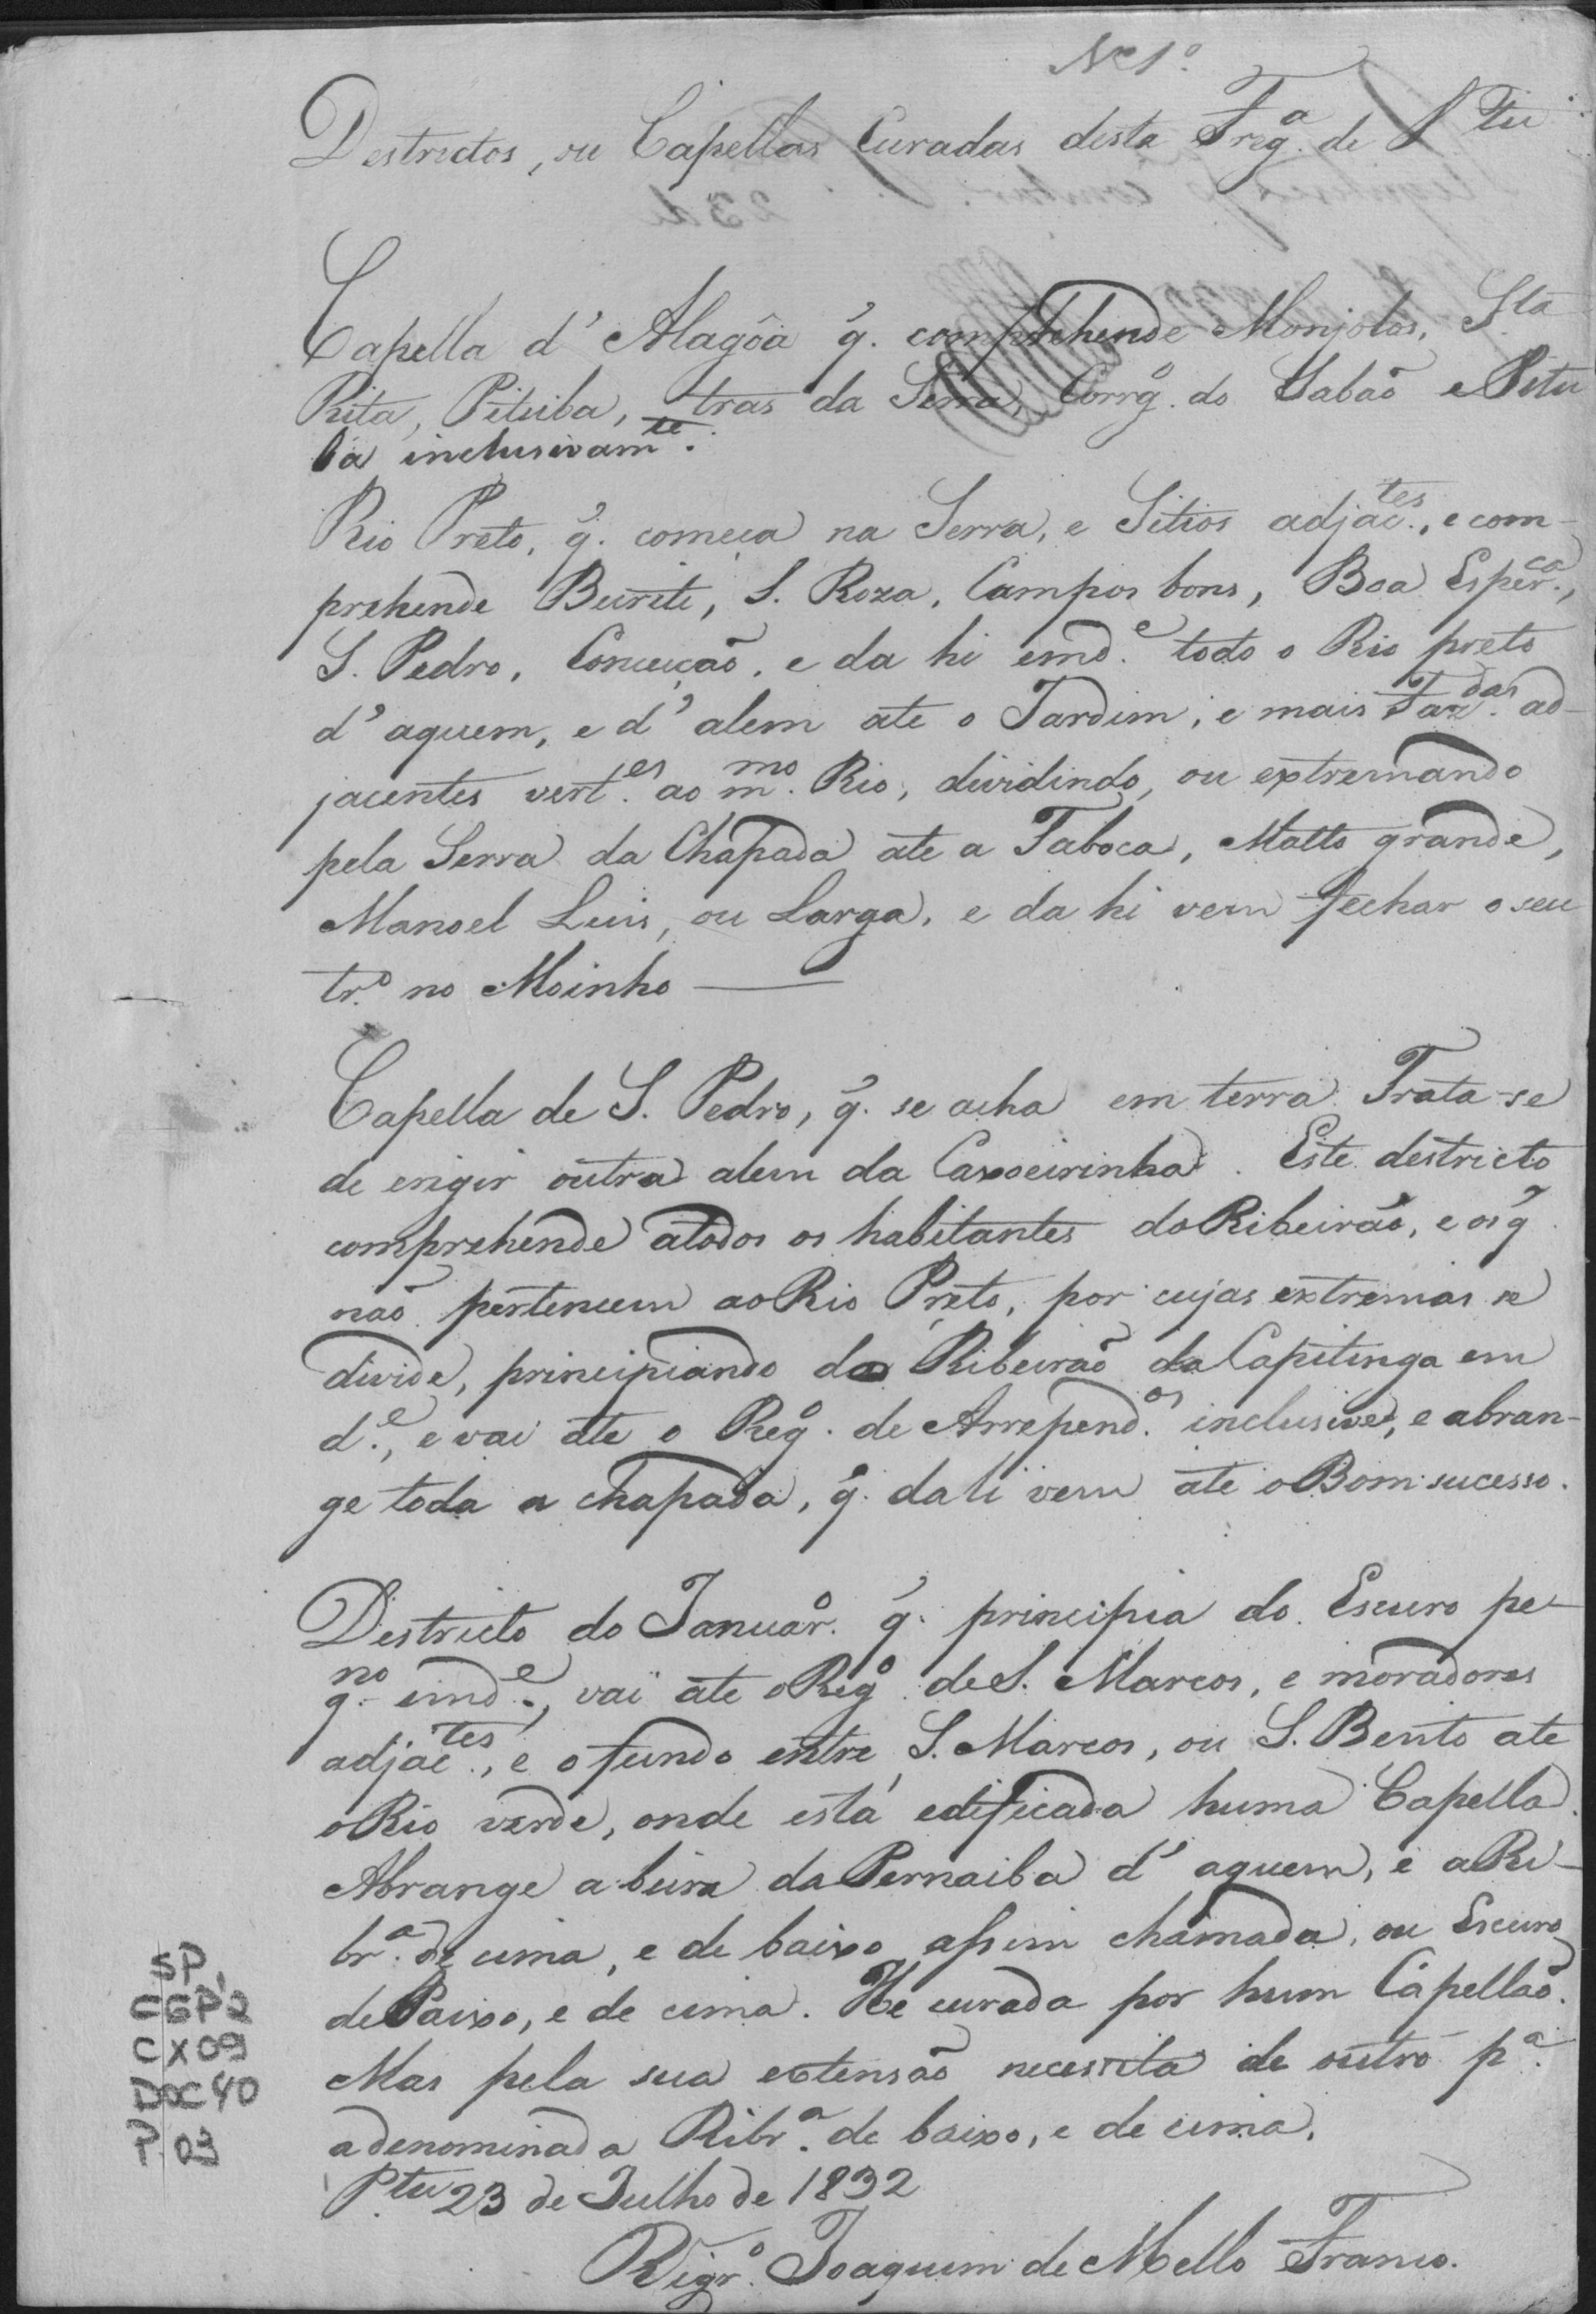 Nº 1º
Destrictos, ou Capellas Curadas desta Freg.ª de P.tu
Capella d'Alagôa q̃. comprehende Monjolos, S.ta
Rita, Pituba, tras da Serra, Corrg.º do Gabaõ e Petu
ba inclusivam.te.
Rio Preto, q̃. começa na Serra, e Sitios adjac.tes, e com-
prehende Buriti, S. Roza, Campos bons, Boa Esper.ça,
S. Pedro, Conceiçaõ, e da hi emd.e todo o Rio preto
d'aquem, e d'alem ate o Jardim, e mais Faz.das ad-
jacentes vert.es ao m.mo Rio, dividindo, ou extremando
pela Serra da Chapada ate a Taboca, Matto grande,
Manoel Luis, ou Larga, e da hi vem fechar o seu
tr.º no Moinho ——
Capella de S. Pedro, q̃. se acha em terra. Trata-se
de erigir outra alem da Caxoeirinha. Este destricto
comprehende atodos os habitantes do Ribeirão, e os q̃
naõ pertencem ao Rio Preto, por cujas extremas se
divide, principiando do Ribeiraõ da Capitinga em
d.e, e vai ate o Reg.º de Arrepend.os inclusive, e abran-
ge toda a chapada, q̃. dali vem ate o Bom sucesso.
Destricto do Januar.º q̃. principia do Escuro pe-
q.no emd.e, vai ate o Reg.º de S. Marcos, e moradores
adjac.tes, e o fundo entre S. Marcos, ou S. Bento ate
o Rio verde, onde está edificada huma Capella.
Abrange a beira da Pernaiba d'aquem, e a Ri-
br.ª de cima, e de baixo assim chamada, ou Escuro
de Baixo, e de cima. He curada por hum Capellaõ.
Mas pela sua extensaõ necessita de outro p.ª
a denominada Ribr.ª de baixo, e de cima.
P.tu 23 de Julho de 1832
O Vigr.º Joaquim de Mello Franco.
SP
CGP2
CX09
DOC 40
P. 03